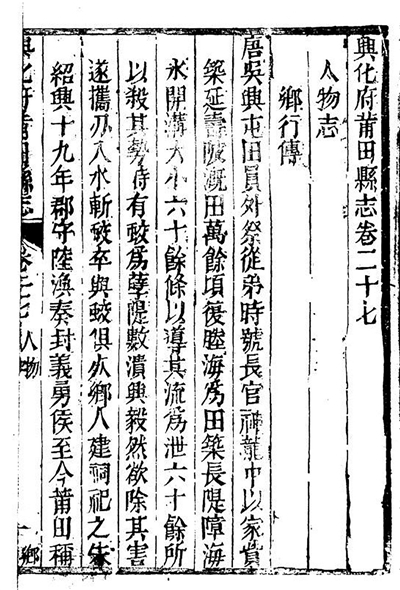 興化府莆田縣志卷二十七
人物志
鄉行傳
唐吳興屯田員外祭從弟時號長官神龍中以家貲
築延壽陂溉田萬餘頃復塍海爲田築長隄障海
水開溝大小六十餘條以導其流爲泄六十餘所
以殺其勢時有蛟爲孽隄數潰興毅然欲除其害
遂攜刃入水斬蛟卒與蛟俱死鄉人建祠祀之宋
紹興十九年郡守陸渙奏封義勇侯至今莆田稱
興化府莆田縣志 卷二七 人物 一 鄉